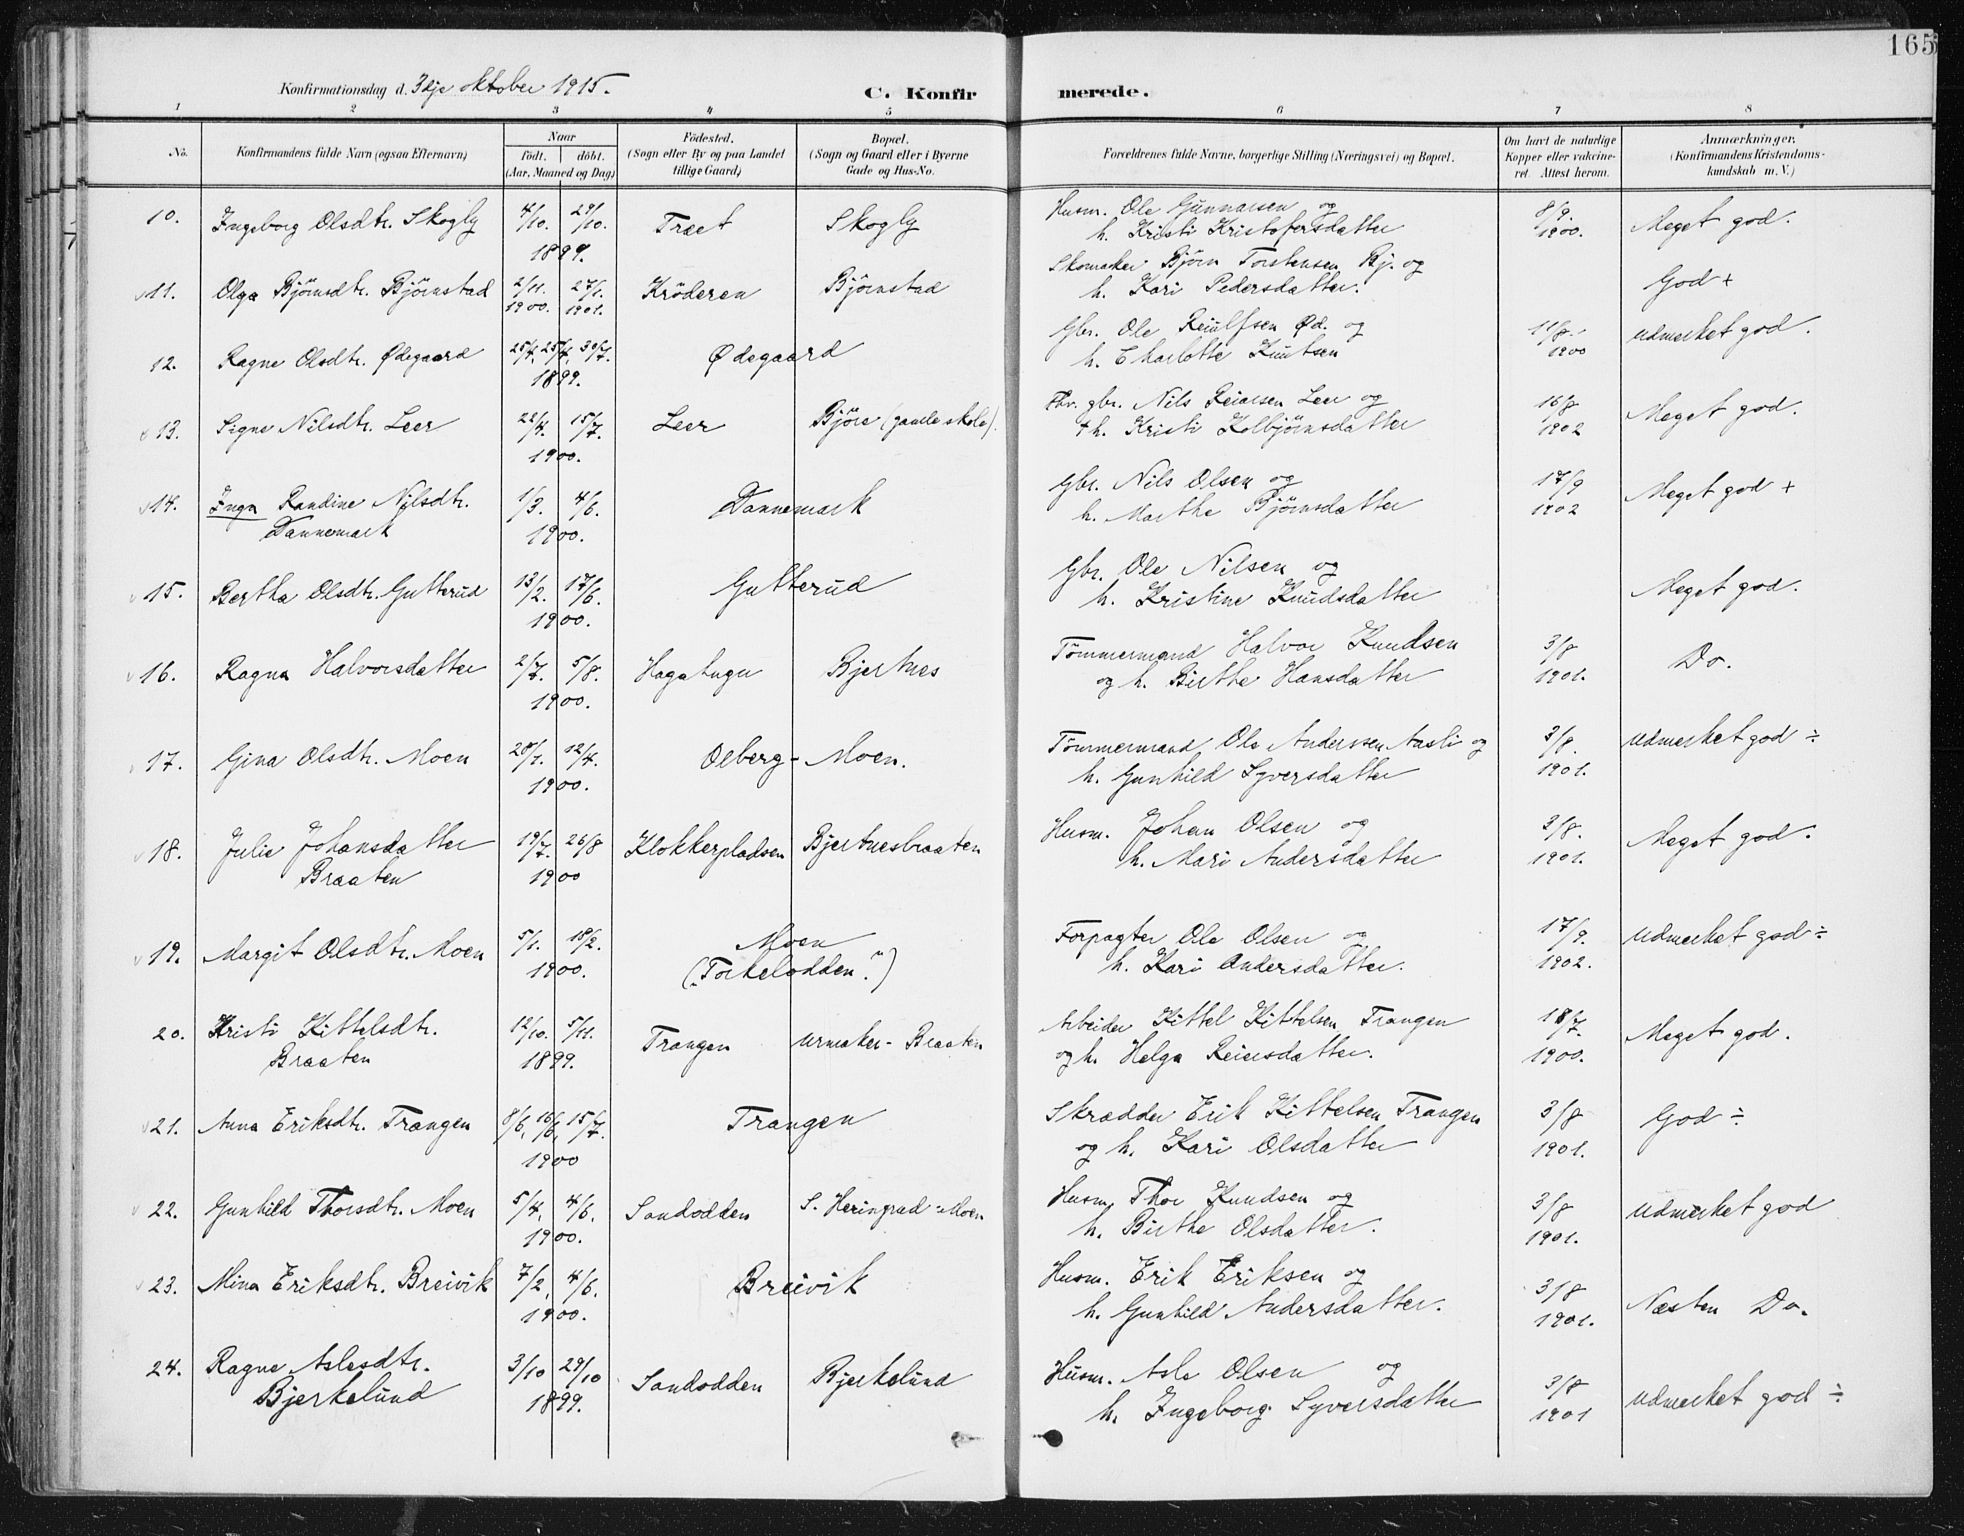 165
Konfirmationsdag d. 3dje oktober 1915.
C. Konfirmerede.
1 2 3 4 5 6 7 8
No. | Konfirmandens fulde Navn (ogsaa Efternavn) | Naar födt. döbt. (Aar, Maaned og Dag) | Födested. (Sogn eller By og paa Landet tillige Gaard) | Bopæl. (Sogn og Gaard eller i Byerne Gade og Hus-No. | Forældrenes fulde Navne, borgerlige Stilling (Næringsvei) og Bopæl. | Om havt de naturlige Kopper eller vakcineret. Attest herom. | Anmærkninger. (Konfirmandens Kristendomskundskab m. V.)
10. Ingeborg Olsdtr. Skogly 4/10. 29/10. 1899. Træet Skogly Husm. Ole Gunnarsen og h. Kristi Kristofersdatter 8/9. 1900. Meget god.
11. Olga Bjørnsdtr. Bjørnstad 2/11. 1900. 27/1. 1901. Krøderen Bjørnstad Skomaker Bjørn Torstensen Bj. og h. Kari Pedersdatter. God +
12. Ragne Olsdtr. Ødegaard 25/4, 25/4, 30/7. 1899. Ødegaard Gbr. Ole Reiulfsen Ød. og h. Charlotte Knutsen 11/8. 1900 udmerket god.
13. Signe Nilsdtr. Leer 22/4. 15/7. 1900. Leer Bjøre (gamle skole). Fhv. gbr. Nils Reiarsen Leer og h. Kristi Kolbjørnsdatter 16/8 1902 Meget god.
14. Inga Randine Nilsdtr. Dannemark 1/3. 4/6. 1900. Dannemark Gbr. Nils Olsen og h. Marthe Bjørnsdatter 17/9 1902 Meget god +
15. Bertha Olsdtr. Gutterud 13/2. 17/6. 1900. Gutterud Gbr. Ole Nilsen og h. Kristine Knudsdatter Meget god.
16. Ragna Halvorsdatter 2/7. 5/8. 1900. Hagatugu Bjertnes Tømmermand Halvor Knudsen og h. Birthe Hansdatter 3/8 1901. Do.
17. Gina Olsdtr. Moen 28/1. 12/4. 1900. Olberg - Moen. Tømmermand Ole Anderssen Aasli og h. Gunhild Syversdatter 3/8. 1901. udmerket god ÷
18. Julie Johansdatter Braaten 19/7. 26/8 1900 Klokkerpladsen Bjertnesbraaten Husm. Johan Olsen og h. Mari Andersdatter 3/8. 1901. Meget god.
19. Margit Olsdtr. Moen 5/1. 18/2. 1900. Moen ("Torkelodden.") Forpagter Ole Olsen og h. Kari Andersdatter. 17/9. 1902. udmerket god ÷
20. Kristi Kittelsdtr. Braaten 12/10. 5/11. 1899. Trangen urmaker-Braaten Arbeider Kittel Kittelsen Trangen og h. Helga Reiersdatter. 18/7. 1900. Meget god.
21. Anna Eriksdtr. Trangen 8/6, 16/6, 15/7. 1900 Trangen Skrædder Erik Kittelsen Trangen og h. Kari Olsdatter 3/8 1901. God ÷
22. Gunhild Thorsdtr. Moen 5/4, 4/6. 1900. Sandodden S. -Moen Husm. Thor Knudsen og h. Birthe Olsdatter. 3/8 1901. udmerket god
23. Mina Eriksdtr. Breivik 7/2, 4/6. 1900. Breivik Husm. Erik Eriksen og h. Gunhild Andersdatter. 3/8 1901. Næsten Do.
24. Ragne Aslesdtr. Bjerkelund 3/10 29/10 1899. Sandodden Bjerkelund Husm. Asle Olsen og h. Ingeborg Syversdatter 3/8 1901 udmerket god ÷